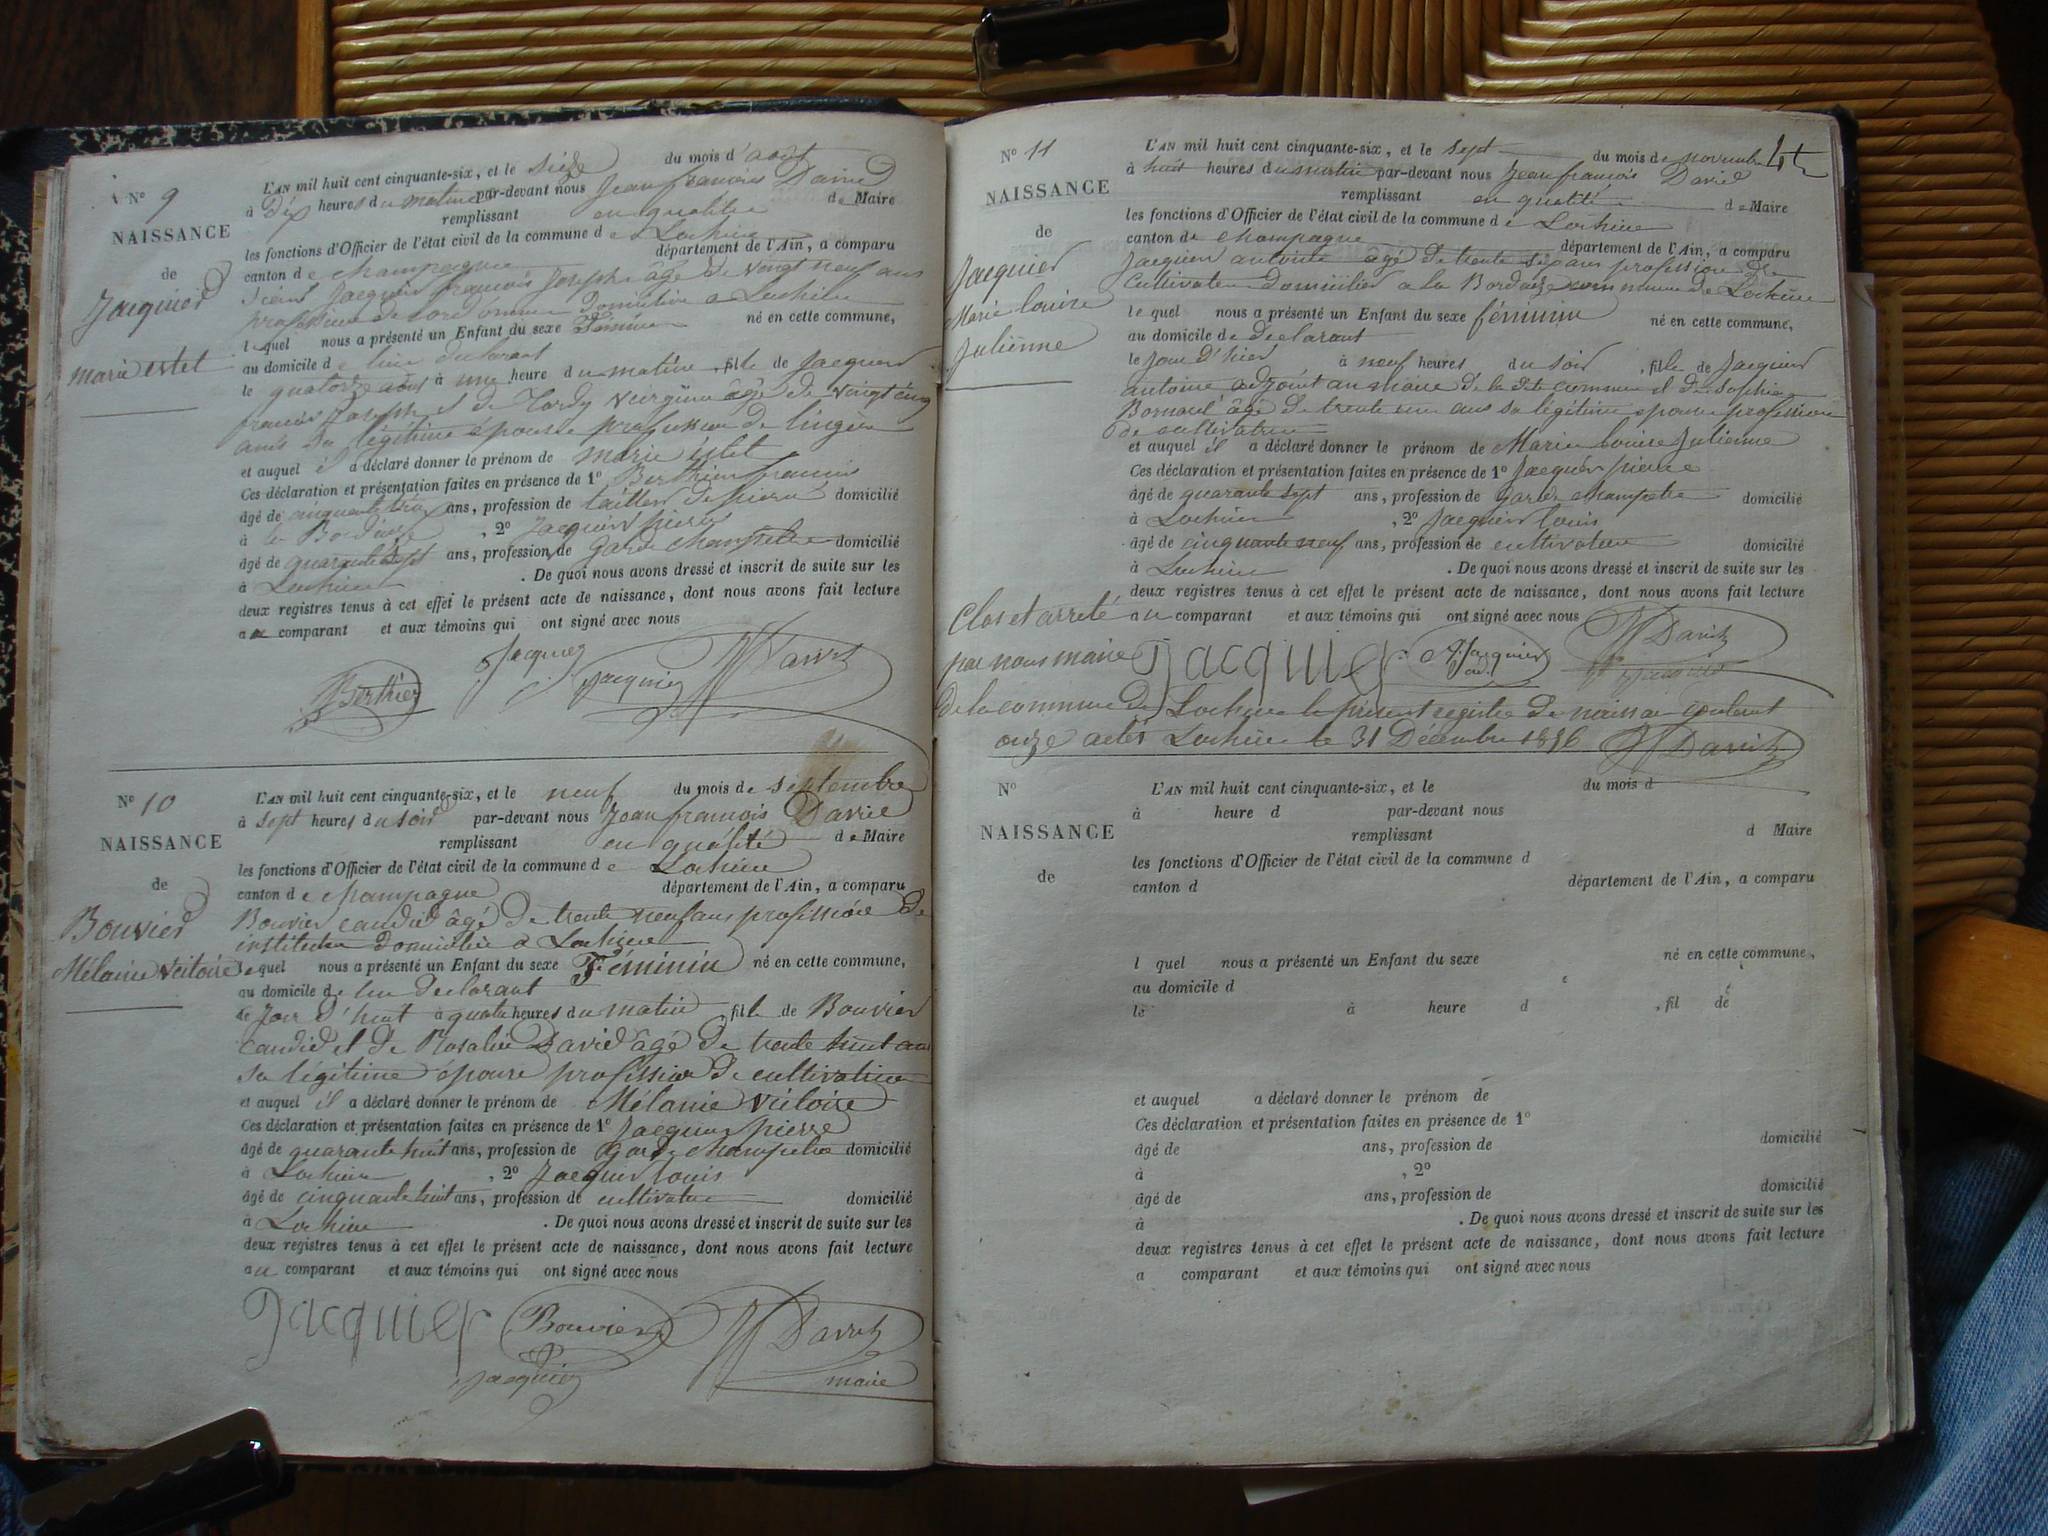 N° 9
NAISSANCE
de
Jacquier
marie estel
L'AN mil huit cent cinquante-six, et le seize du mois d'août
à Dix heures du matin par-devant nous Jean francois David
remplissant en qualité de Maire
les fonctions d'Officier de l'état civil de la commune de Lochieu
canton de champagne département de l'Ain, a comparu
Jacquier francois Joseph âgé de vingt neuf ans
profession de domicilié a Lochieu
lequel nous a présenté un Enfant du sexe féminin né en cette commune,
au domicile de lui declarant
le quatorze aout à une heure du matin, fille de Jacquier
francois Joseph et de Tardy Virginie âgé de vingt cinq
ans sa légitime epouse profession de lingère
et auquel il a déclaré donner le prénom de marie éstel
Ces déclaration et présentation faites en présence de 1° Berthier francois
âgé de cinquante trois ans, profession de tailleur de pierre domicilié
à la , 2° Jacquier pierre
âgé de quarante sept ans, profession de garde champetre domicilié
à Lochieu . De quoi nous avons dressé et inscrit de suite sur les
deux registres tenus à cet effet le présent acte de naissance, dont nous avons fait lecture
au comparant et aux témoins qui ont signé avec nous
Jacquier
Berthier Jacquier David
N° 10
NAISSANCE
de
Bouvier
Mélanie victoire
L'AN mil huit cent cinquante-six, et le neuf du mois de septembre
à sept heures du soir par-devant nous Jean francois David
remplissant en qualité de Maire
les fonctions d'Officier de l'état civil de la commune de Lochieu
canton de champagne département de l'Ain, a comparu
Bouvier candid âgé de trente neuf ans profession de
instituteur domicilié a Lochieu
lequel nous a présenté un Enfant du sexe Féminin né en cette commune,
au domicile de lui declarant
le Jour d'huit à quatre heures du matin, fille de Bouvier
candid et de Rosalie David âgé de trente huit ans
sa légitime épouse profession de cultivatrice
et auquel il a déclaré donner le prénom de Mélanie victoire
Ces déclaration et présentation faites en présence de 1° Jacquier pierre
âgé de quarante huit ans, profession de garde champetre domicilié
à Lochieu , 2° Jacquier louis
âgé de cinquante huit ans, profession de cultivateur domicilié
à Lochieu . De quoi nous avons dressé et inscrit de suite sur les
deux registres tenus à cet effet le présent acte de naissance, dont nous avons fait lecture
au comparant et aux témoins qui ont signé avec nous
Jacquier Bouvier David
Jacquier maire
N° 11
NAISSANCE
de
Jacquier
Marie louise
Julienne
L'AN mil huit cent cinquante-six, et le sept du mois de novembre
à huit heures du matin par-devant nous Jean francois David
remplissant en qualité de Maire
les fonctions d'Officier de l'état civil de la commune de Lochieu
canton de champagne département de l'Ain, a comparu
Jacquier antoine âgé de trente six ans profession de
cultivateur domicilié a la commune de Lochieu
lequel nous a présenté un Enfant du sexe féminin né en cette commune,
au domicile de declarant
le Jour d'hier à neuf heures du soir, fille de Jacquier
antoine adjoint au maire de la dite commune et de Sophie
Bornard âgé de trente un ans sa légitime épouse profession
de cultivatrice
et auquel il a déclaré donner le prénom de Marie louise Julienne
Ces déclaration et présentation faites en présence de 1° Jacquier pierre
âgé de quarante sept ans, profession de garde champetre domicilié
à Lochieu , 2° Jacquier louis
âgé de cinquante neuf ans, profession de cultivateur domicilié
à Lochieu . De quoi nous avons dressé et inscrit de suite sur les
deux registres tenus à cet effet le présent acte de naissance, dont nous avons fait lecture
au comparant et aux témoins qui ont signé avec nous
Jacquier A. Jacquier David
Clos et arreté
par nous maire
de la commune de Lochieu le présent registre de naissance contenant
onze actes Lochieu le 31 Décembre 1856 David
N°
NAISSANCE
de
L'AN mil huit cent cinquante-six, et le du mois d
à heure d par-devant nous
remplissant d Maire
les fonctions d'Officier de l'état civil de la commune d
canton d département de l'Ain, a comparu
l quel nous a présenté un Enfant du sexe né en cette commune,
au domicile d
le à heure d , fil de
et auquel a déclaré donner le prénom de
Ces déclaration et présentation faites en présence de 1°
âgé de ans, profession de domicilié
à , 2°
âgé de ans, profession de domicilié
à . De quoi nous avons dressé et inscrit de suite sur les
deux registres tenus à cet effet le présent acte de naissance, dont nous avons fait lecture
a comparant et aux témoins qui ont signé avec nous